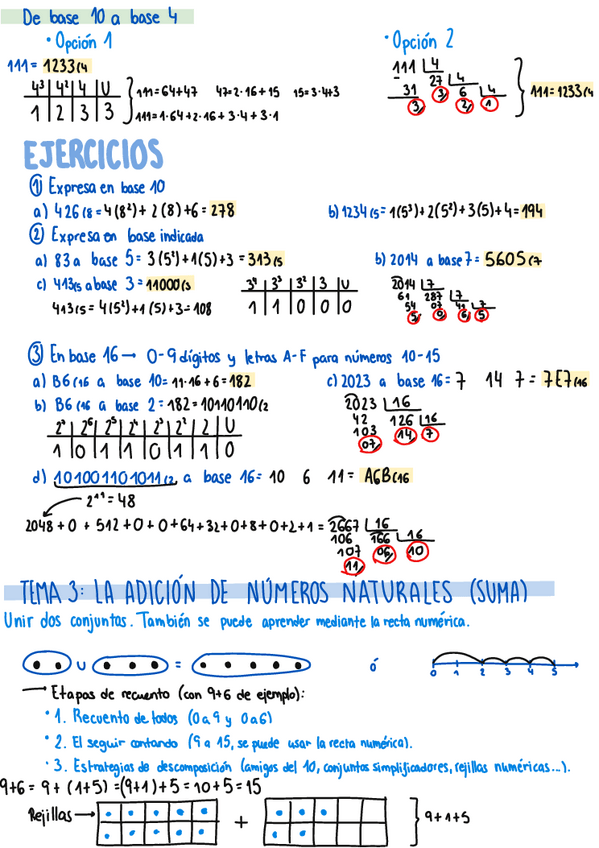 De base 10 a base 4
• Opción 1
• Opción 2
111 = 1233(4
4³ 4² 4 U
1 2 3 3
111=64+47 47=2·16+15 15=3·4+3
111=1·64+2·16+3·4+3·1
111 4
31 27 4
3 3 6 4
2 1
111=1233(4
EJERCICIOS
① Expresa en base 10
a) 426(8 = 4(8²)+ 2(8)+6 = 278
b) 1234(5 = 1(5³)+2(5²)+3(5)+4 = 194
② Expresa en base indicada
a) 83 a base 5 = 3(5²)+1(5)+3 = 313(5
b) 2014 a base 7 = 5605(7
c) 413(5 a base 3 = 11000(3
413(5 = 4(5²)+1(5)+3 = 108
3⁴ 3³ 3² 3 U
1 1 0 0 0
2014 7
61 287 7
54 07 41 7
5 0 6 5
③ En base 16 → 0-9 dígitos y letras A-F para números 10-15
a) B6(16 a base 10 = 11·16+6 = 182
c) 2023 a base 16 = 7 14 7 = 7E7(16
b) B6(16 a base 2 = 182 = 10110110(2
2⁷ 2⁶ 2⁵ 2⁴ 2³ 2² 2 U
1 0 1 1 0 1 1 0
2023 16
42 126 16
103 14 7
07
d) 101001101011(2 a base 16 = 10 6 11 = A6B(16
2¹¹ = 48
2048 + 0 + 512 + 0 + 0 + 64 + 32 + 0 + 8 + 0 + 2 + 1 = 2667 16
106 166 16
107 06 10
11
TEMA 3: LA ADICIÓN DE NÚMEROS NATURALES (SUMA)
Unir dos conjuntos. También se puede aprender mediante la recta numérica.
U = ó
0 1 2 3 4 5
Etapas de recuento (con 9+6 de ejemplo):
• 1. Recuento de todos (0 a 9 y 0 a 6)
• 2. El seguir contando (9 a 15, se puede usar la recta numérica).
• 3. Estrategias de descomposición (amigos del 10, conjuntos simplificadores, rejillas numéricas...).
9+6 = 9 + (1+5) = (9+1) + 5 = 10 + 5 = 15
Rejillas → + 9+1+5